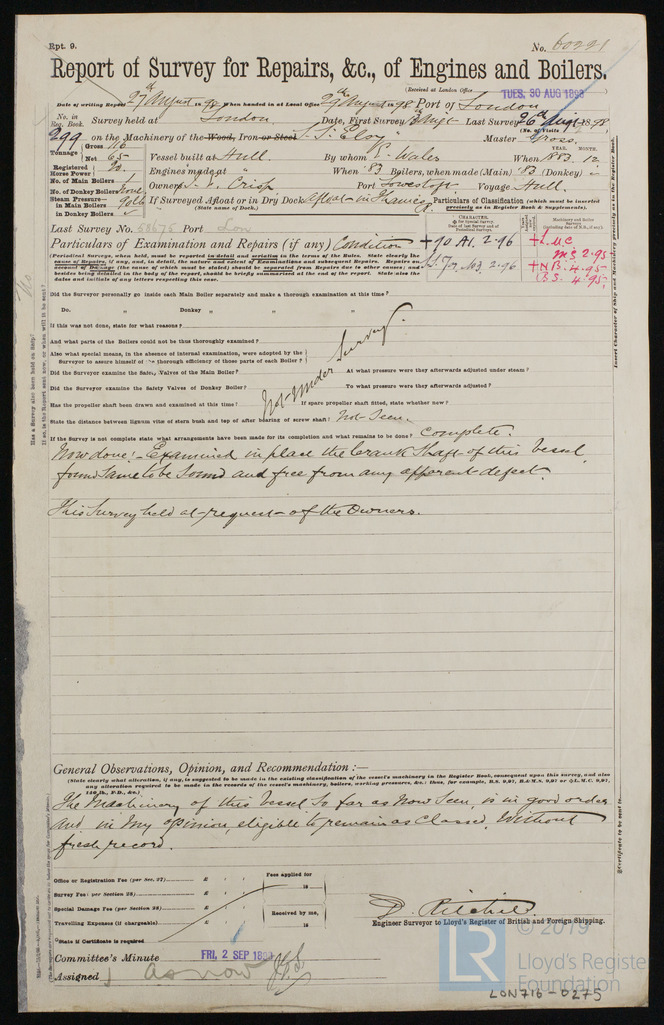 Rpt. 9.
No. 60221
Report of Survey for Repairs, &c., of Engines and Boilers.
(Received at London Office TUES. 30 AUG 1898
Date of writing Report 27th August 1898 When handed in at Local Office 29th August 1898 Port of London
No. in Reg. Book. Survey held at London Date, First Survey Last Survey 26th Augt 1898
(No. of Visits
299 on the Machinery of the Wood, Iron or Steel S.S. Eloy Master
Tonnage Gross 116 Net 65 Vessel built at Hull. By whom When 1883. 12 YEAR. MONTH.
Registered Horse Power 20 Engines made at " When '83 Boilers, when made (Main) '83 (Donkey)
No. of Main Boilers 1
No. of Donkey Boilers None Owners Crisp Port Lowestoft Voyage Hull.
Steam Pressure in Main Boilers 90 lb in Donkey Boilers
If Surveyed Afloat or in Dry Dock Afloat in Thames
(State name of Dock.)
Particulars of Classification (which must be inserted precisely as in Register Book & Supplements).
Last Survey No. 58675 Port Lon
Particulars of Examination and Repairs (if any) Condition
+90 A1. 2.96
2.96
+L.M.C.
MS 2.95
+N.B. 4.95
BS 4.95
(Periodical Surveys, when held, must be reported in detail and seriatim in the terms of the Rules. State clearly the
name of Repairs, if any, and, in detail, the nature and extent of Examinations and subsequent Repairs. Repairs on
account of Damage (the cause of which must be stated) should be separated from Repairs due to other causes; and
besides being detailed in the body of the report, should be briefly summarized at the end of the report. State also the
dates and initials of any letters respecting this case.
Did the Surveyor personally go inside each Main Boiler separately and make a thorough examination at this time?
Do. Donkey " " "
If this was not done, state for what reasons?
And what parts of the Boilers could not be thus thoroughly examined?
Also what special means, in the absence of internal examination, were adopted by the
Surveyor to assure himself of the thorough efficiency of those parts of each Boiler?
Did the Surveyor examine the Safety Valves of the Main Boiler? At what pressure were they afterwards adjusted under steam?
Did the Surveyor examine the Safety Valves of Donkey Boiler? To what pressure were they afterwards adjusted?
Not Under Survey.
Has the propeller shaft been drawn and examined at this time? If spare propeller shaft fitted, state whether new?
State the distance between lignum vitæ of stern bush and top of after bearing of screw shaft? Not Seen.
If the Survey is not complete state what arrangements have been made for its completion and what remains to be done? Complete.
Now done:- Examined in place the Crank Shaft of this Vessel
found same to be Sound and free from any apparent defect.
This Survey held at request of the Owners.
General Observations, Opinion, and Recommendation:—
(State clearly what alteration, if any, is suggested to be made in the existing classification of the vessel's machinery in the Register Book, consequent upon this survey, and also
any alteration required to be made in the records of the vessel's machinery, boilers, working pressures, &c.: thus, for example, B.S. 9,97, B.&M.S. 9,97 or L.M.C. 9,97,
140 lb., F.D., &c.)
The Machinery of this Vessel So far as Now Seen, is in good order
and in my opinion, eligible to remain as Classed, Without
fresh record.
Office or Registration Fee (per Sec. 27) £ : : Fees applied for
Survey Fee (per Section 28) £ : : 18
Special Damage Fee (per Section 28) £ : : Received by me,
Travelling Expenses (if chargeable) £ : : 18
State if Certificate is required
D. Ritchie
Engineer Surveyor to Lloyd's Register of British and Foreign Shipping.
Committee's Minute FRI. 2 SEP 1898
Assigned as now
© 2019
LR
Lloyd's Register
Foundation
LON716-0275